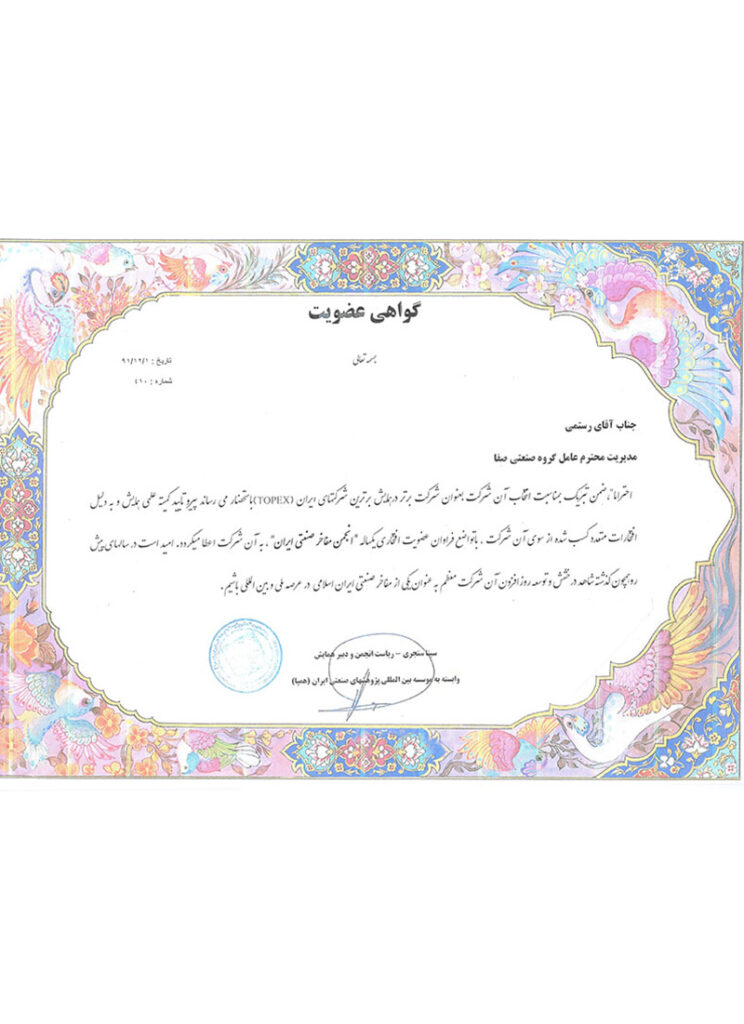 گواهی عضویت
بسمه تعالی
تاریخ : ۹۱/۱۲/۱
شماره : ۴۱۰
جناب آقای رستمی
مدیریت محترم عامل گروه صنعتی صفا
احتراماً ضمن تبریک بمناسبت انتخاب آن شرکت بعنوان شرکت برتر درهمایش برترین شرکتهای ایران (TOPEX) باستحضار می رساند پیرو تایید کمیته علمی همایش و به دلیل
افتخارات متعدده کسب شده از سوی آن شرکت ، باتواضع فراوان عضویت افتخاری یکساله "انجمن مفاخر صنعتی ایران" ، به آن شرکت اعطا میگردد. امید است در سالهای پیش
رو همچون گذشته شاهد درخشش و توسعه روز افزون آن شرکت معظم به عنوان یکی از مفاخر صنعتی ایران اسلامی در عرصه ملی و بین المللی باشیم.
سینا سنجری – ریاست انجمن و دبیر همایش
وابسته به موسسه بین المللی پژوهشهای صنعتی ایران (همپا)